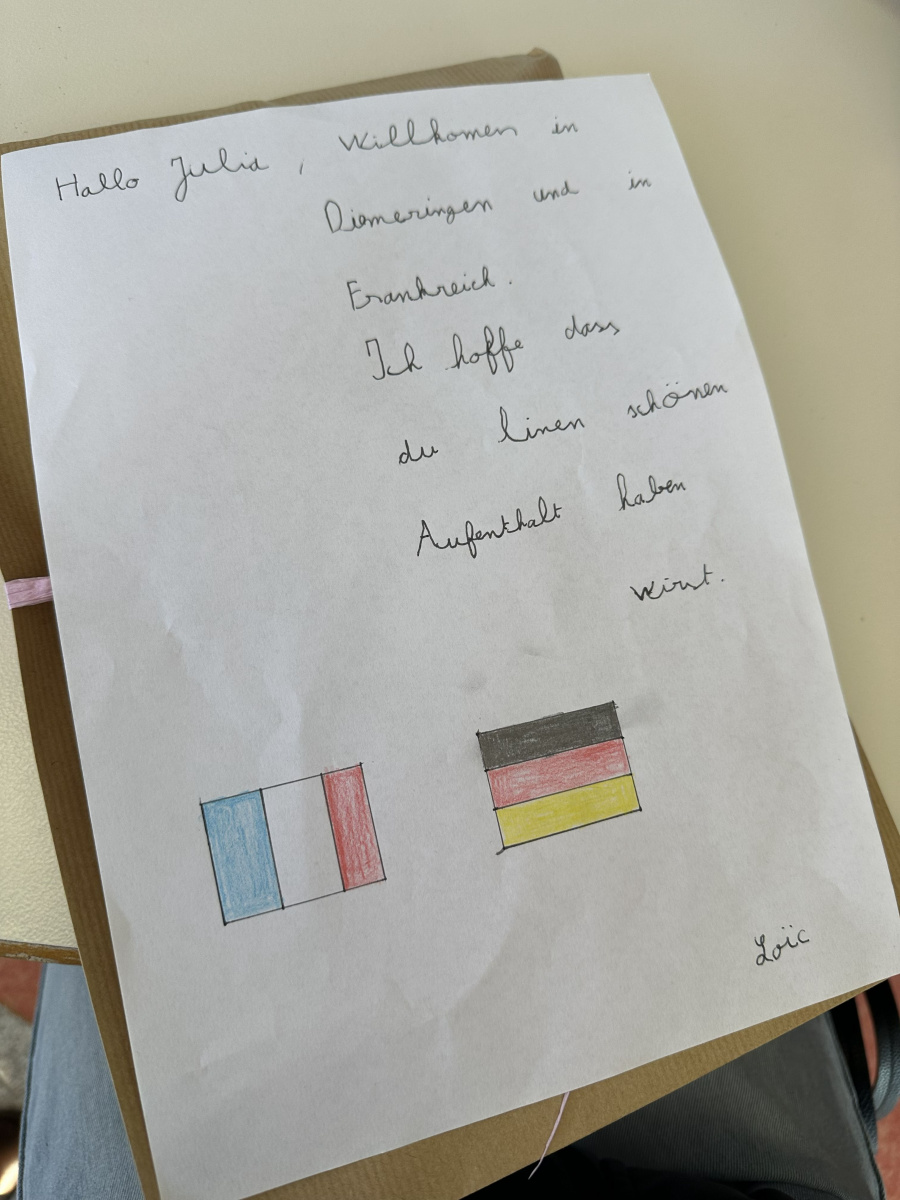 Hallo Julia, Willkomen in
Diemeringen und in
Frankreich.
Ich hoffe dass
du einen schönen
Aufenthalt haben
wirst.
Loïc